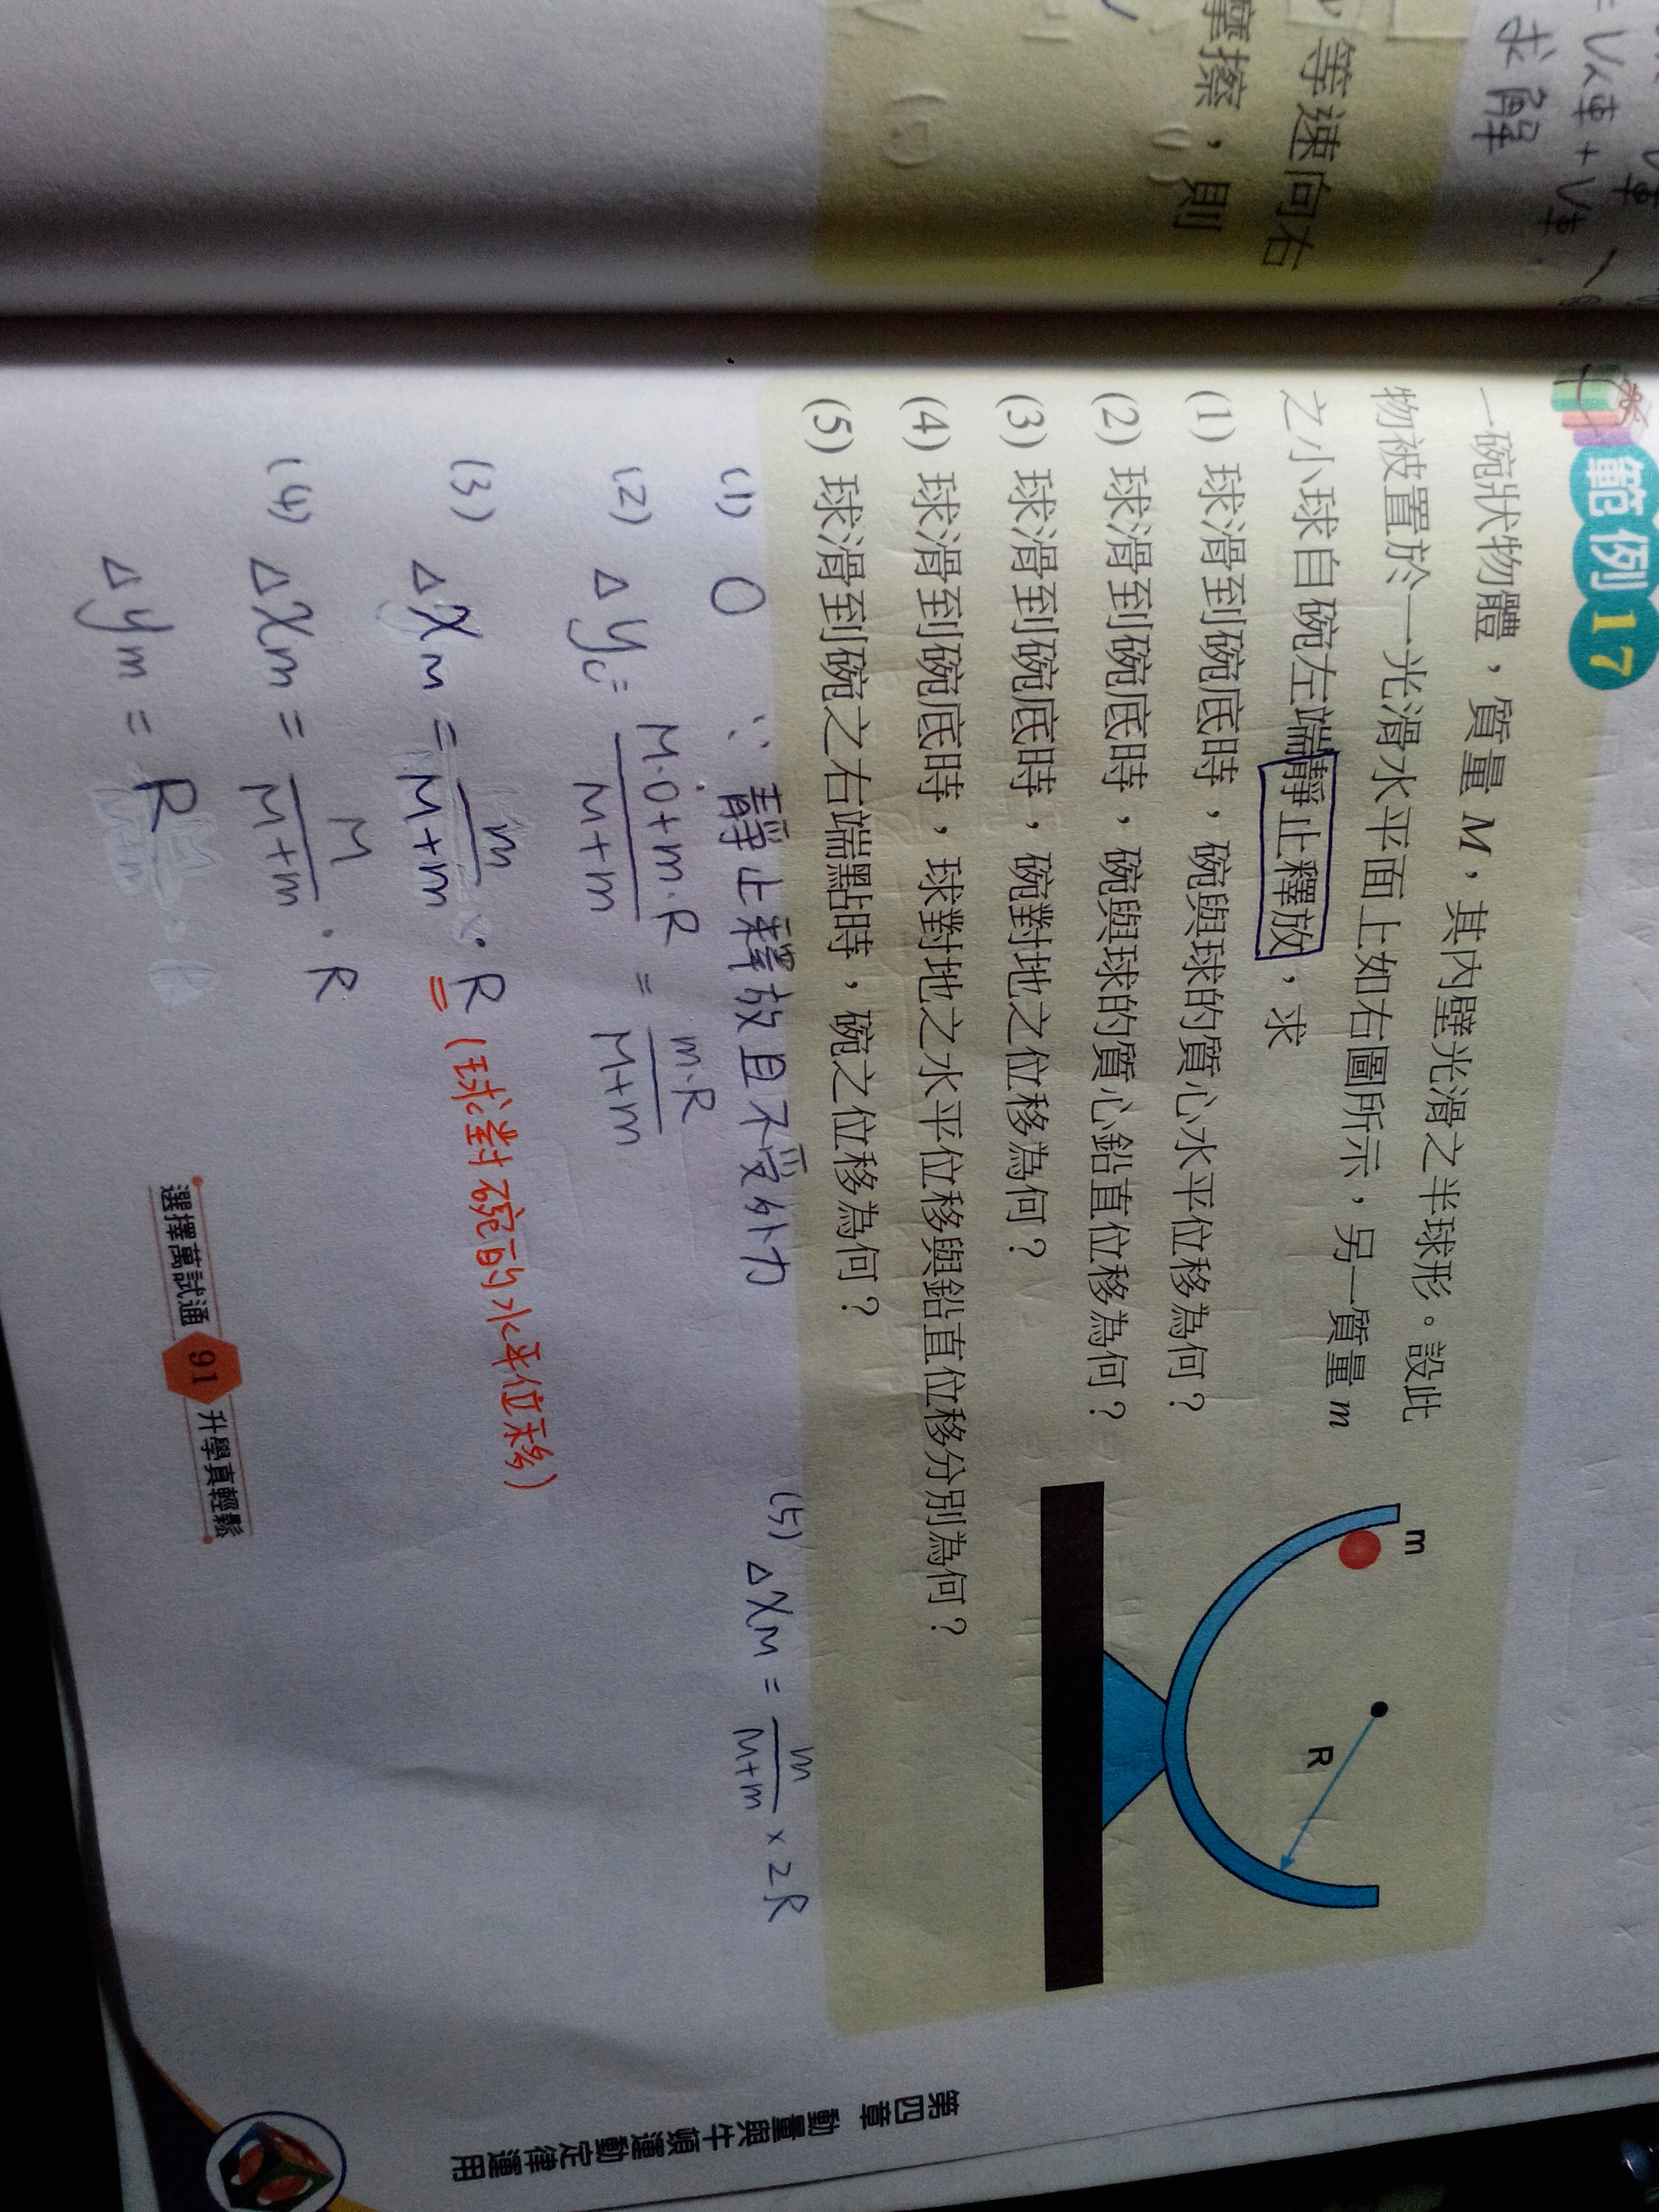 求解
等速向右
摩擦，則
範例17
一碗狀物體，質量 M，其內壁光滑之半球形。設此
物被置於一光滑水平面上如右圖所示，另一質量 m
之小球自碗左端靜止釋放，求
(1) 球滑到碗底時，碗與球的質心水平位移為何？
(2) 球滑到碗底時，碗與球的質心鉛直位移為何？
(3) 球滑到碗底時，碗對地之位移為何？
(4) 球滑到碗底時，球對地之水平位移與鉛直位移分別為何？
(5) 球滑到碗之右端點時，碗之位移為何？
m
R
(1) 0 ∵靜止釋放且不受外力
(2) Δyc = M·0+m·R / M+m = m·R / M+m
(3) ΔxM = m / M+m · R = (球對碗的水平位移)
(4) Δxm = M / M+m · R
Δym = R
(5) ΔxM = m / M+m × 2R
選擇萬試通 91 升學真輕鬆
第四章 動量與牛頓運動定律運用